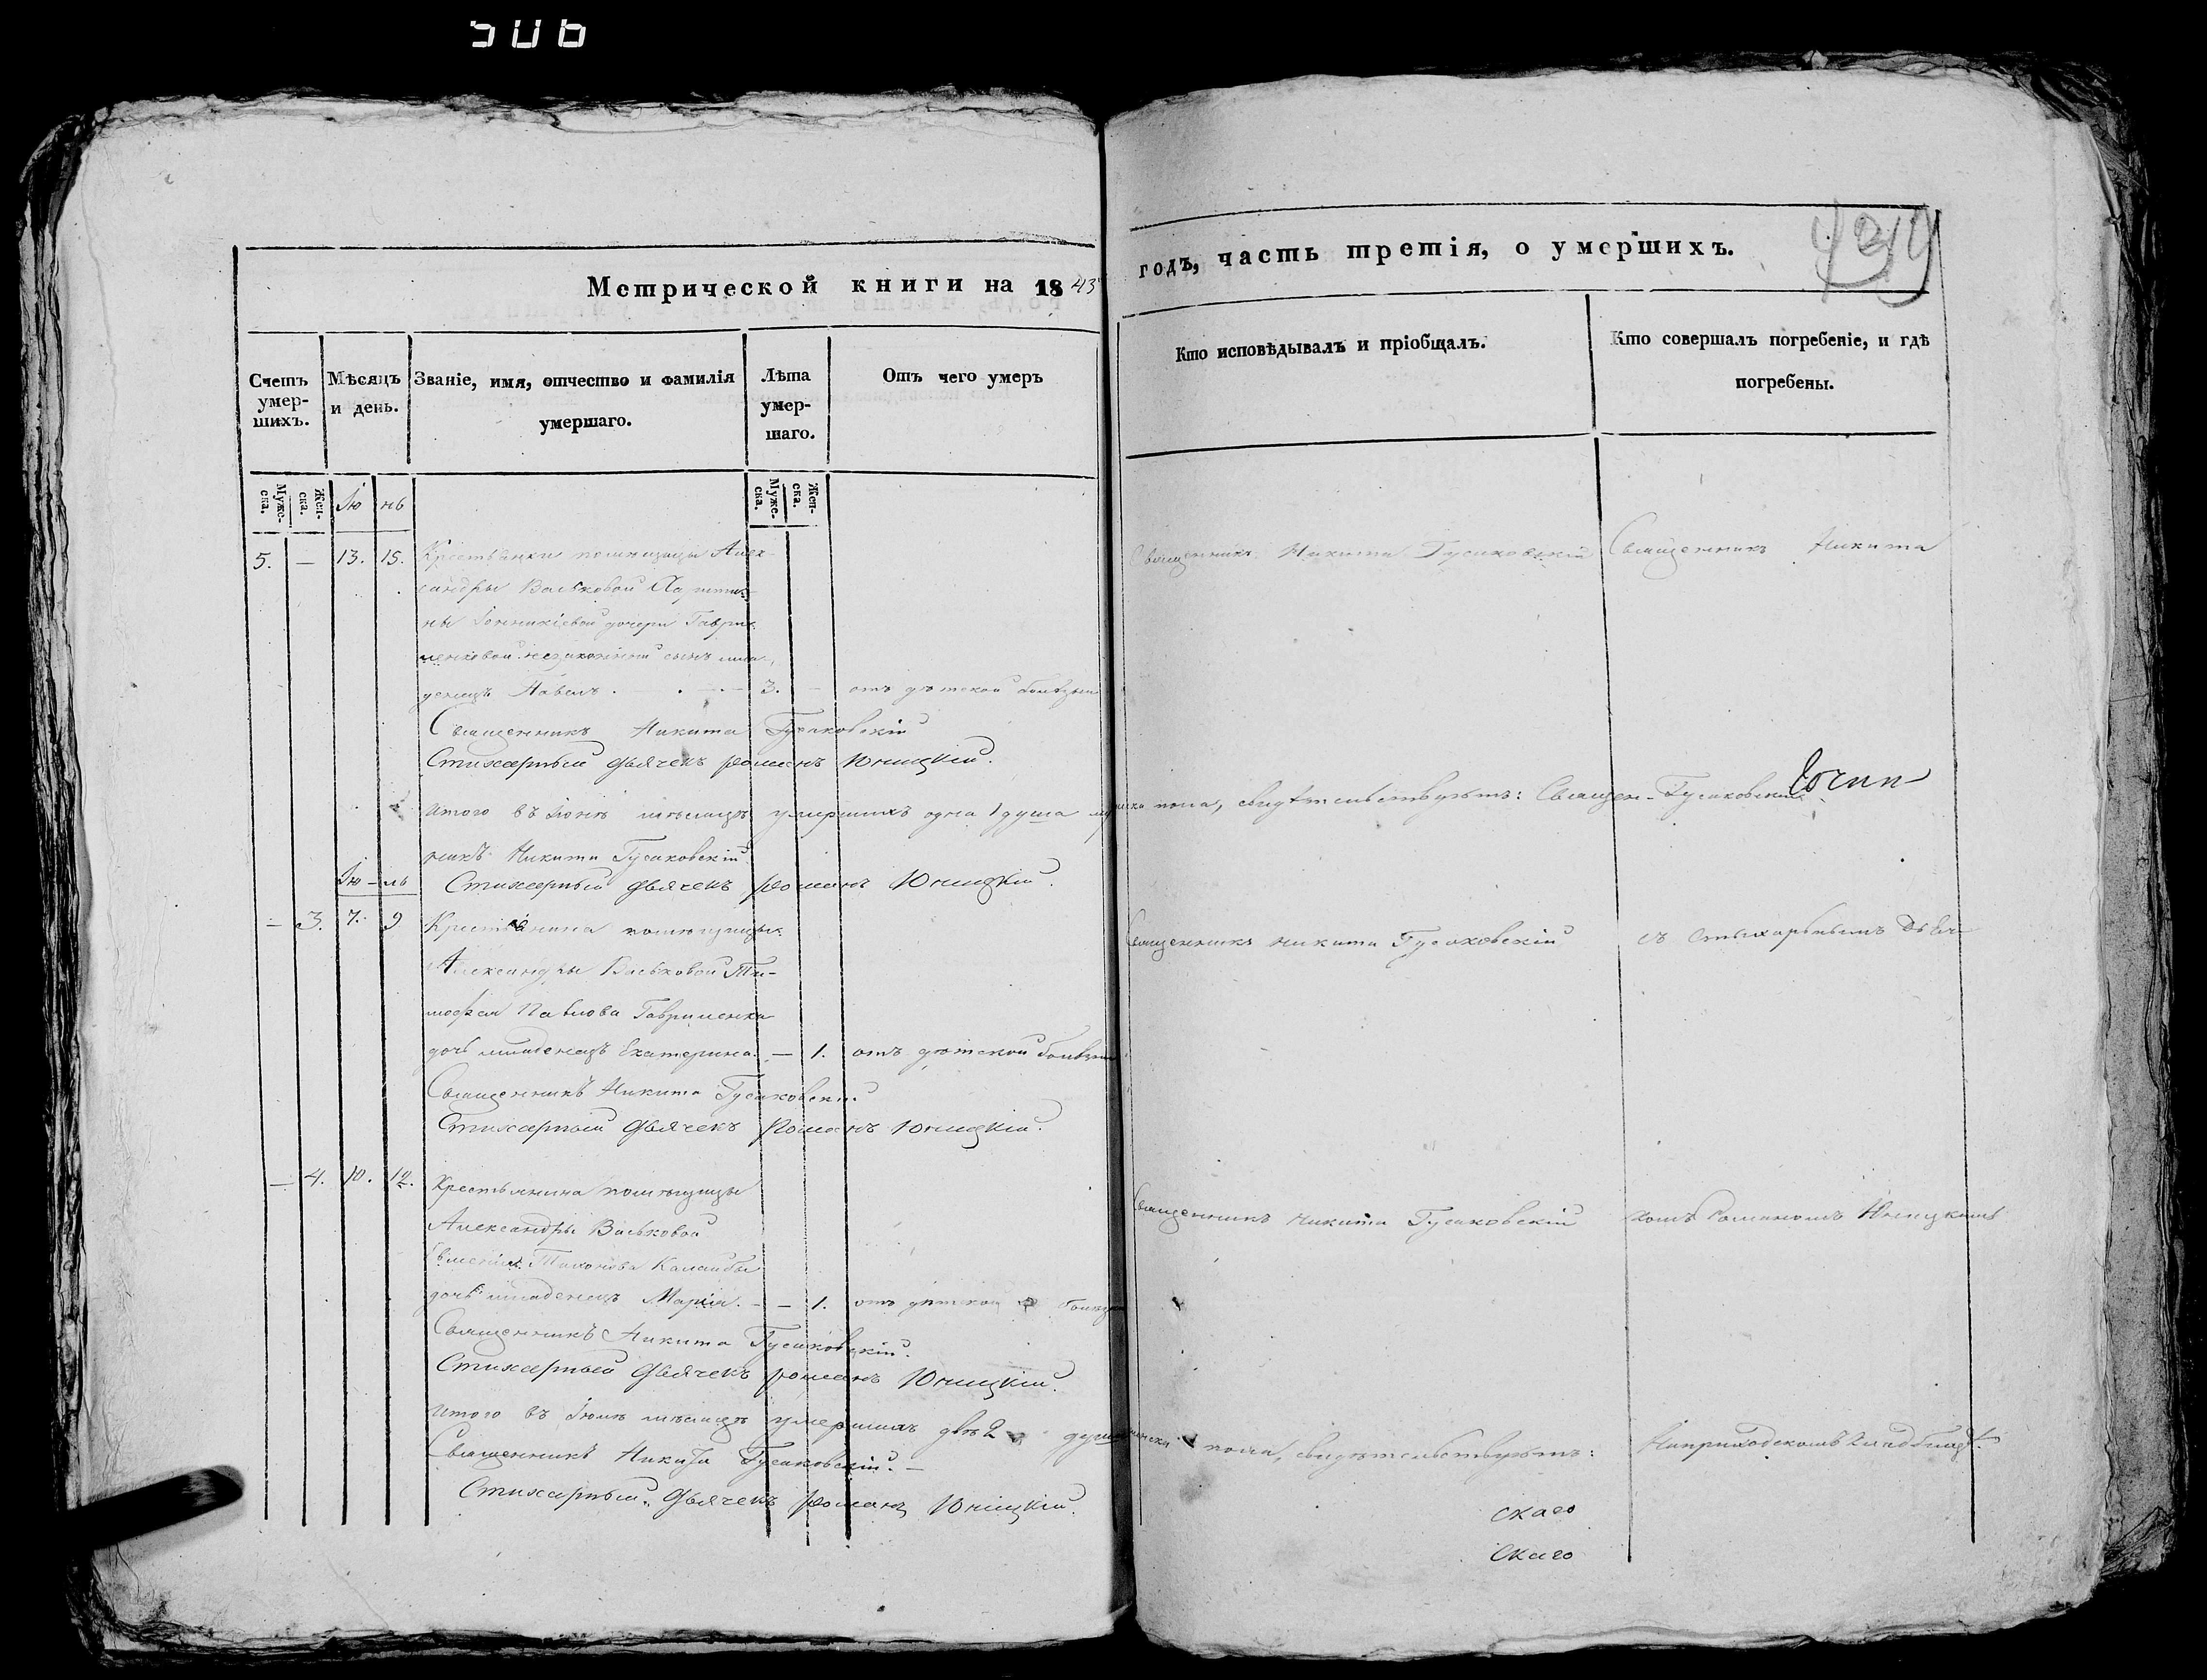 506
Метрической книги на 1843
годъ, часть третія, о умершихъ.
Счетъ умер-шихъ.
Мѣсяцъ и день.
Званіе, имя, отчество и фамилія умершаго.
Лѣта умер-шаго.
Отъ чего умеръ
Кто исповѣдывалъ и пріобщалъ.
Кто совершалъ погребеніе, и гдѣ погребены.
Муже-ска.
Жен-ска.
Iю нь
Муже-ска.
Жен-ска.
5. — 13. 15. Крестьянки помѣщицы Алек-
сандры Вальковой
ны дочери Гаври-
ленковой незаконный сынъ мла-
денецъ Павелъ . — 3. — отъ дѣтской болѣзни
Священникъ Никита Гусаковскій
Священникъ Никита
Священникъ Никита Гусаковскій
Стихарный дьячекъ Романъ Юницкій.
Итого въ Iюнѣ мѣсяцѣ умершихъ одна 1 душа мужеска пола, свидѣтельствуетъ: Священ-
Гусаковскій
никъ Никита Гусаковскій
Iю – ль
Стихарный дьячекъ Романъ Юницкій.
— 3. 7. 9 Крестьянина помѣщицы
Александры Вальковой Ти-
мофея Павлова Гавриленка
дочь младенецъ Екатерина. — 1. отъ дѣтской болѣзни
Священникъ Никита Гусаковскій
съ стихарнымъ Дьяч-
Священникъ Никита Гусаковскій
Стихарный дьячекъ Романъ Юницкій.
— 4. 10. 12. Крестьянина помѣщицы
Александры Вальковой
Тихонова
дочь младенецъ Марія. — — 1. отъ дѣтской болѣзни
Священникъ Никита Гусаковскій
комъ Романомъ Юницкимъ
Священникъ Никита Гусаковскій.
Стихарный дьячекъ Романъ Юницкій.
Итого въ Iюлѣ мѣсяцѣ умершихъ двѣ 2 души женска пола, свидѣтельствуетъ:
На приходскомъ кладбищѣ.
Священникъ Никита Гусаковскій. —
Стихарный дьячекъ Романъ Юницкій.
скаго
скаго